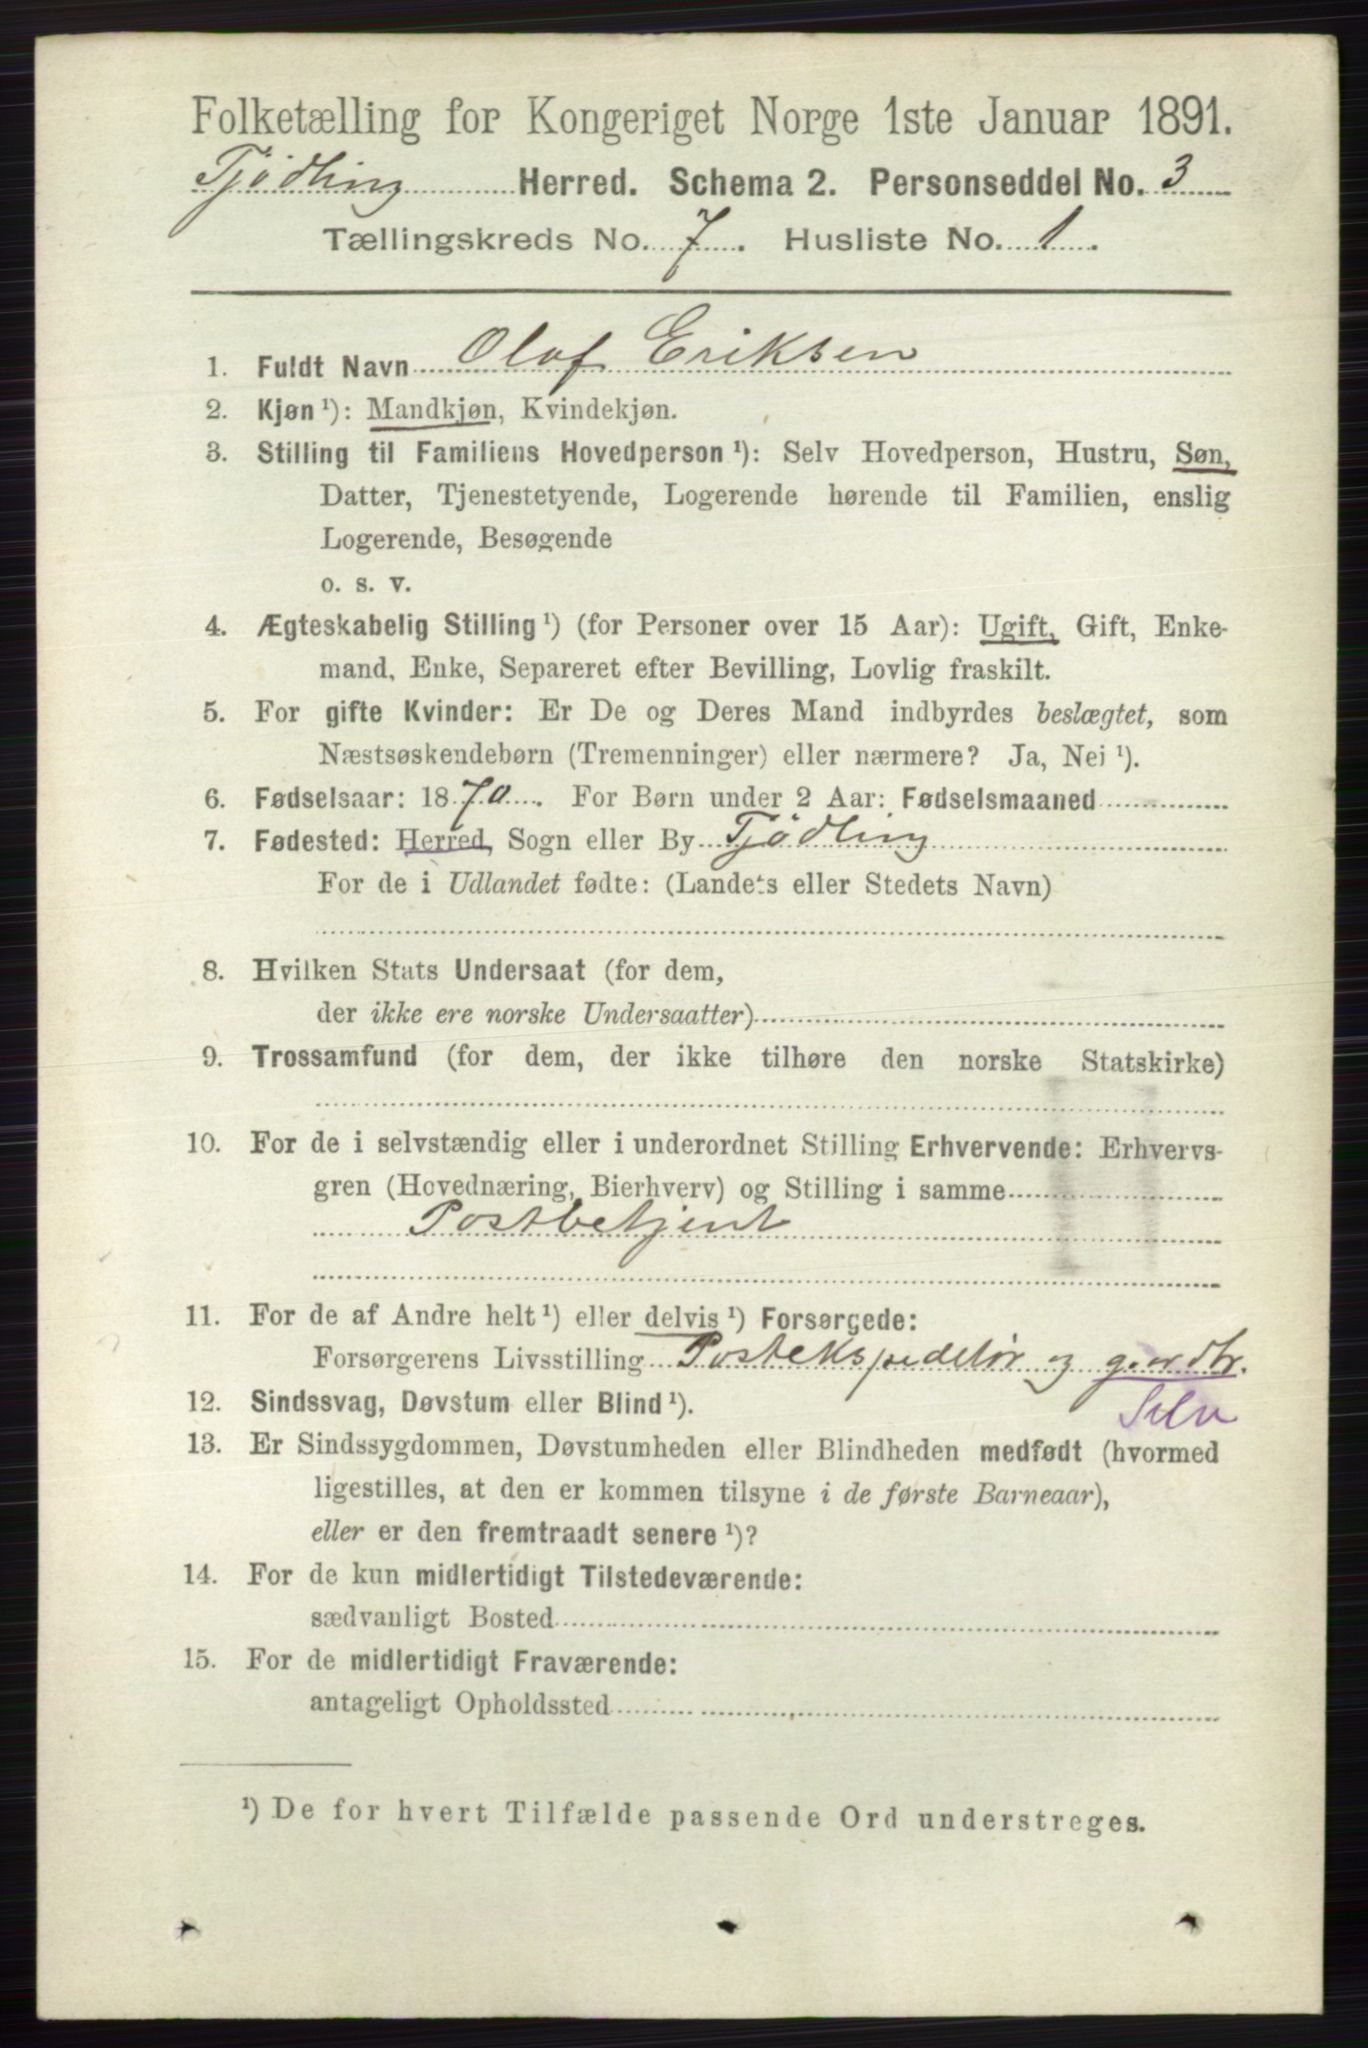 Folketælling for Kongeriget Norge 1ste Januar 1891.
Tjödling Herred. Schema 2. Personseddel No. 3
Tællingskreds No. 7. Husliste No. 1.
1. Fuldt Navn Olaf Eriksen
2. Kjøn ¹): Mandkjøn, Kvindekjøn.
3. Stilling til Familiens Hovedperson ¹): Selv Hovedperson, Hustru, Søn,
Datter, Tjenestetyende, Logerende hørende til Familien, enslig
Logerende, Besøgende
o. s. v.
4. Ægteskabelig Stilling ¹) (for Personer over 15 Aar): Ugift, Gift, Enke-
mand, Enke, Separeret efter Bevilling, Lovlig fraskilt.
5. For gifte Kvinder: Er De og Deres Mand indbyrdes beslægtet, som
Næstsøskendebørn (Tremenninger) eller nærmere? Ja, Nei ¹).
6. Fødselsaar: 1870. For Børn under 2 Aar: Fødselsmaaned
7. Fødested: Herred, Sogn eller By Tjödling
For de i Udlandet fødte: (Landets eller Stedets Navn)
8. Hvilken Stats Undersaat (for dem,
der ikke ere norske Undersaatter)
9. Trossamfund (for dem, der ikke tilhøre den norske Statskirke)
10. For de i selvstændig eller i underordnet Stilling Erhvervende: Erhvervs-
gren (Hovednæring, Bierhverv) og Stilling i samme
Postbetjent
11. For de af Andre helt ¹) eller delvis ¹) Forsørgede:
Forsørgerens Livsstilling Postekspeditör og gaardbr.
12. Sindssvag, Døvstum eller Blind ¹). Selv
13. Er Sindssygdommen, Døvstumheden eller Blindheden medfødt (hvormed
ligestilles, at den er kommen tilsyne i de første Barneaar),
eller er den fremtraadt senere ¹)?
14. For de kun midlertidigt Tilstedeværende:
sædvanligt Bosted
15. For de midlertidigt Fraværende:
antageligt Opholdssted
¹) De for hvert Tilfælde passende Ord understreges.